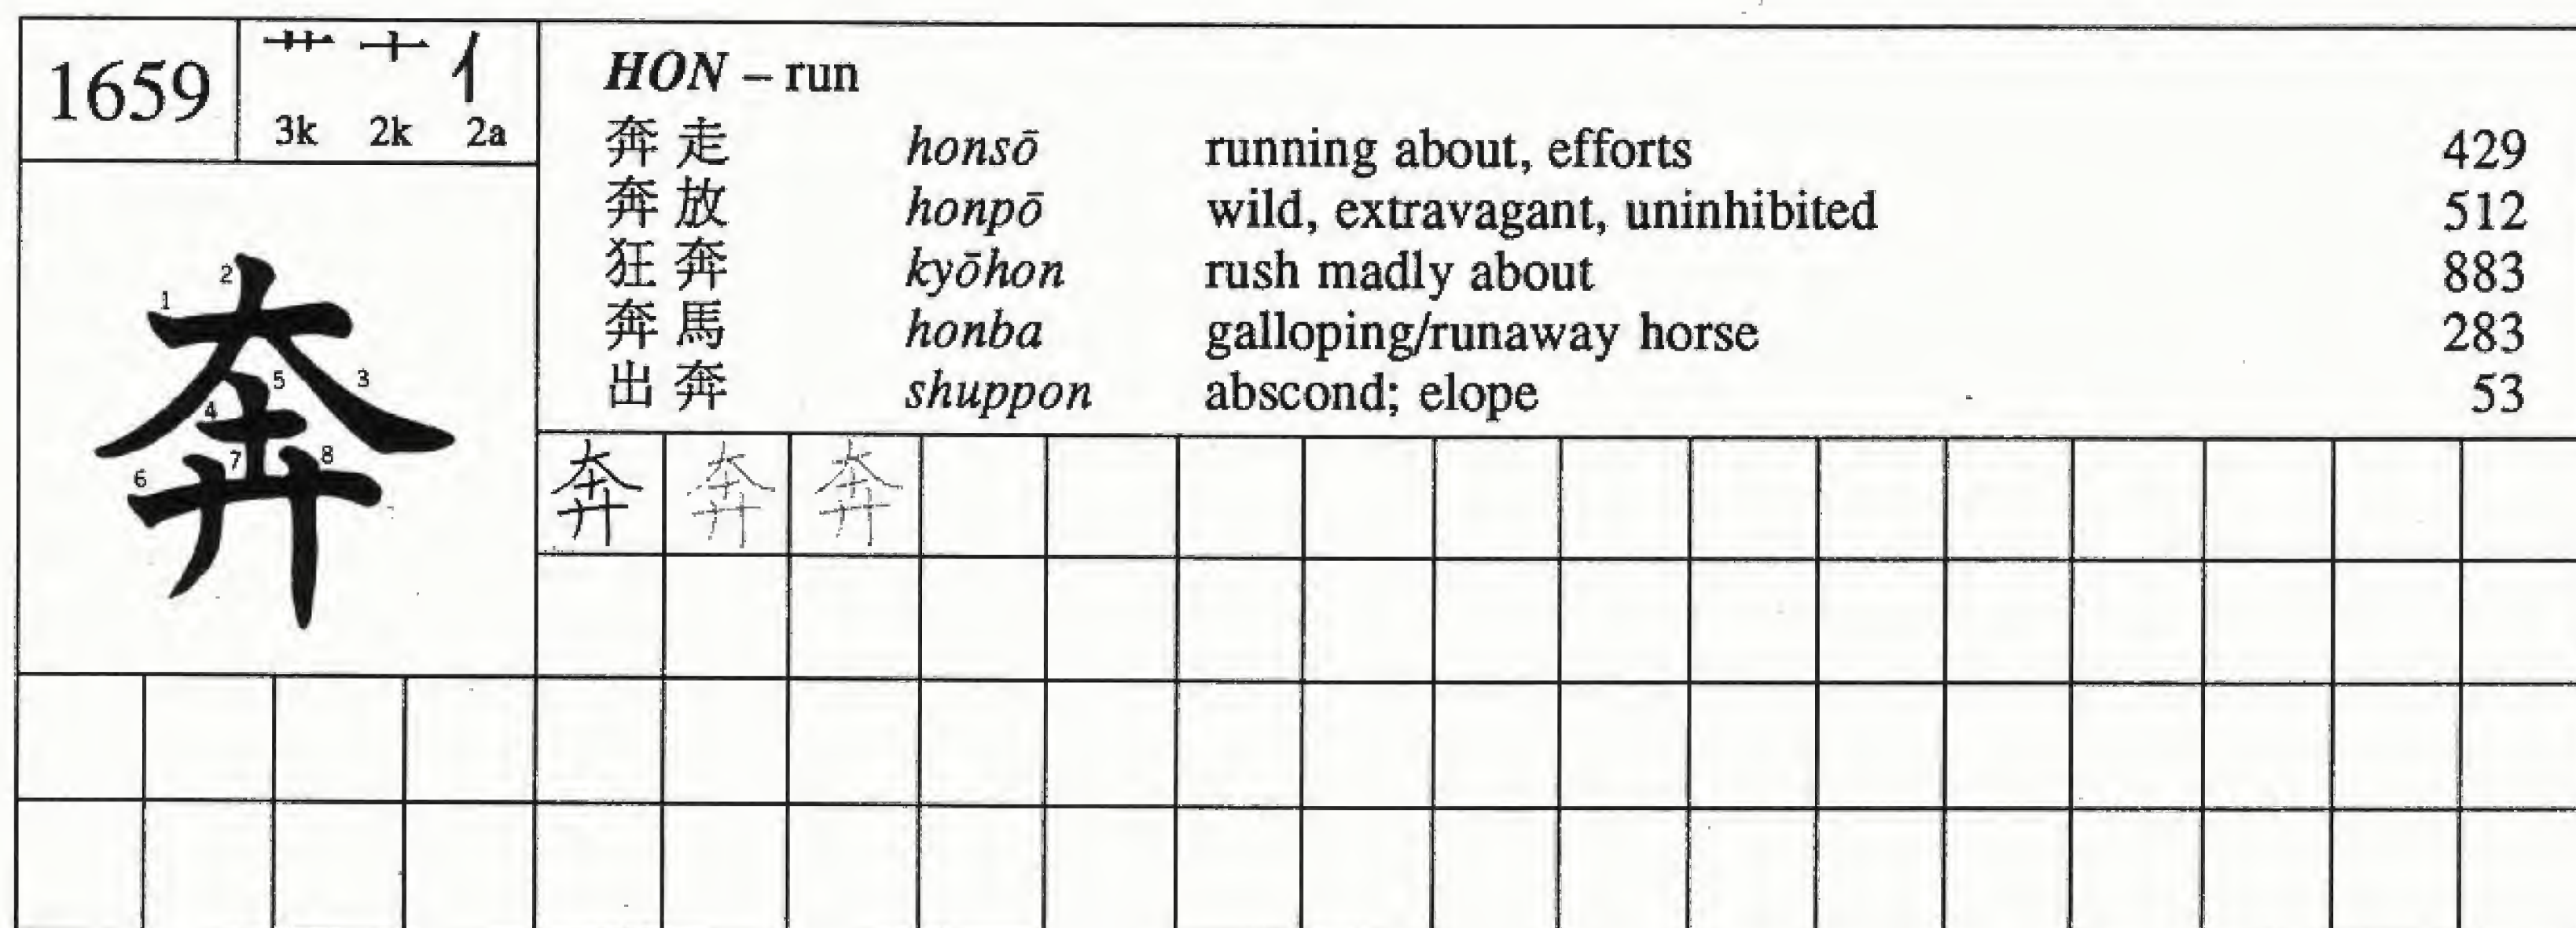 1659
艹 十 亻
3k 2k 2a
HON – run
奔走 honsō running about, efforts 429
奔放 honpō wild, extravagant, uninhibited 512
狂奔 kyōhon rush madly about 883
奔馬 honba galloping/runaway horse 283
出奔 shuppon abscond; elope 53
奔
1 2 3 4 5 6 7 8
奔 奔 奔